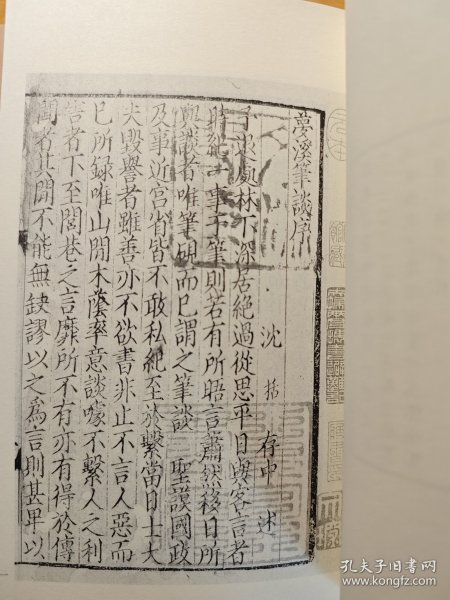 夢溪筆談序
沈括存中述
予退處林下深居絶過從思平日與客言者
時紀一事于筆則若有所晤言蕭然移日所
與談者唯筆硯而已謂之筆談 聖謨國政
及事近宫省皆不敢私紀至於繫當日士大
夫毀譽者雖善亦不欲書非止不言人惡而
已所録唯山間木蔭率意談噱不繫人之利
害者下至閭巷之言靡所不有亦有得於傳
聞者其間不能無缺謬以之爲言則甚卑以
孔夫子旧书网
www.kongfz.com